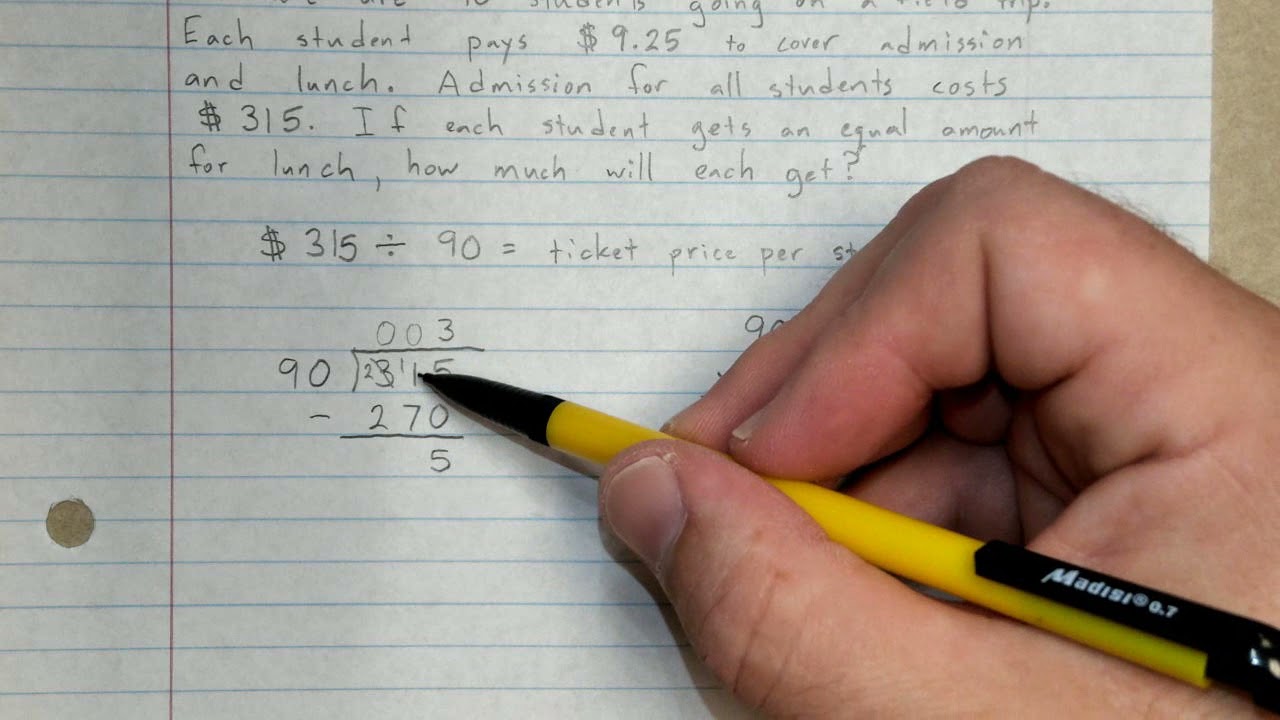 students going on a field trip.
Each student pays $9.25 to cover admission
and lunch. Admission for all students costs
$315. If each student gets an equal amount
for lunch, how much will each get?
$315 ÷ 90 = ticket price per st
003
90
90 2 3 1 1 5
- 270
5
Madisi® 0.7